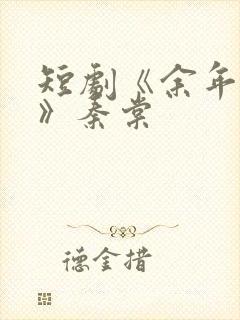 短劇《余年
》秦棠
德金措